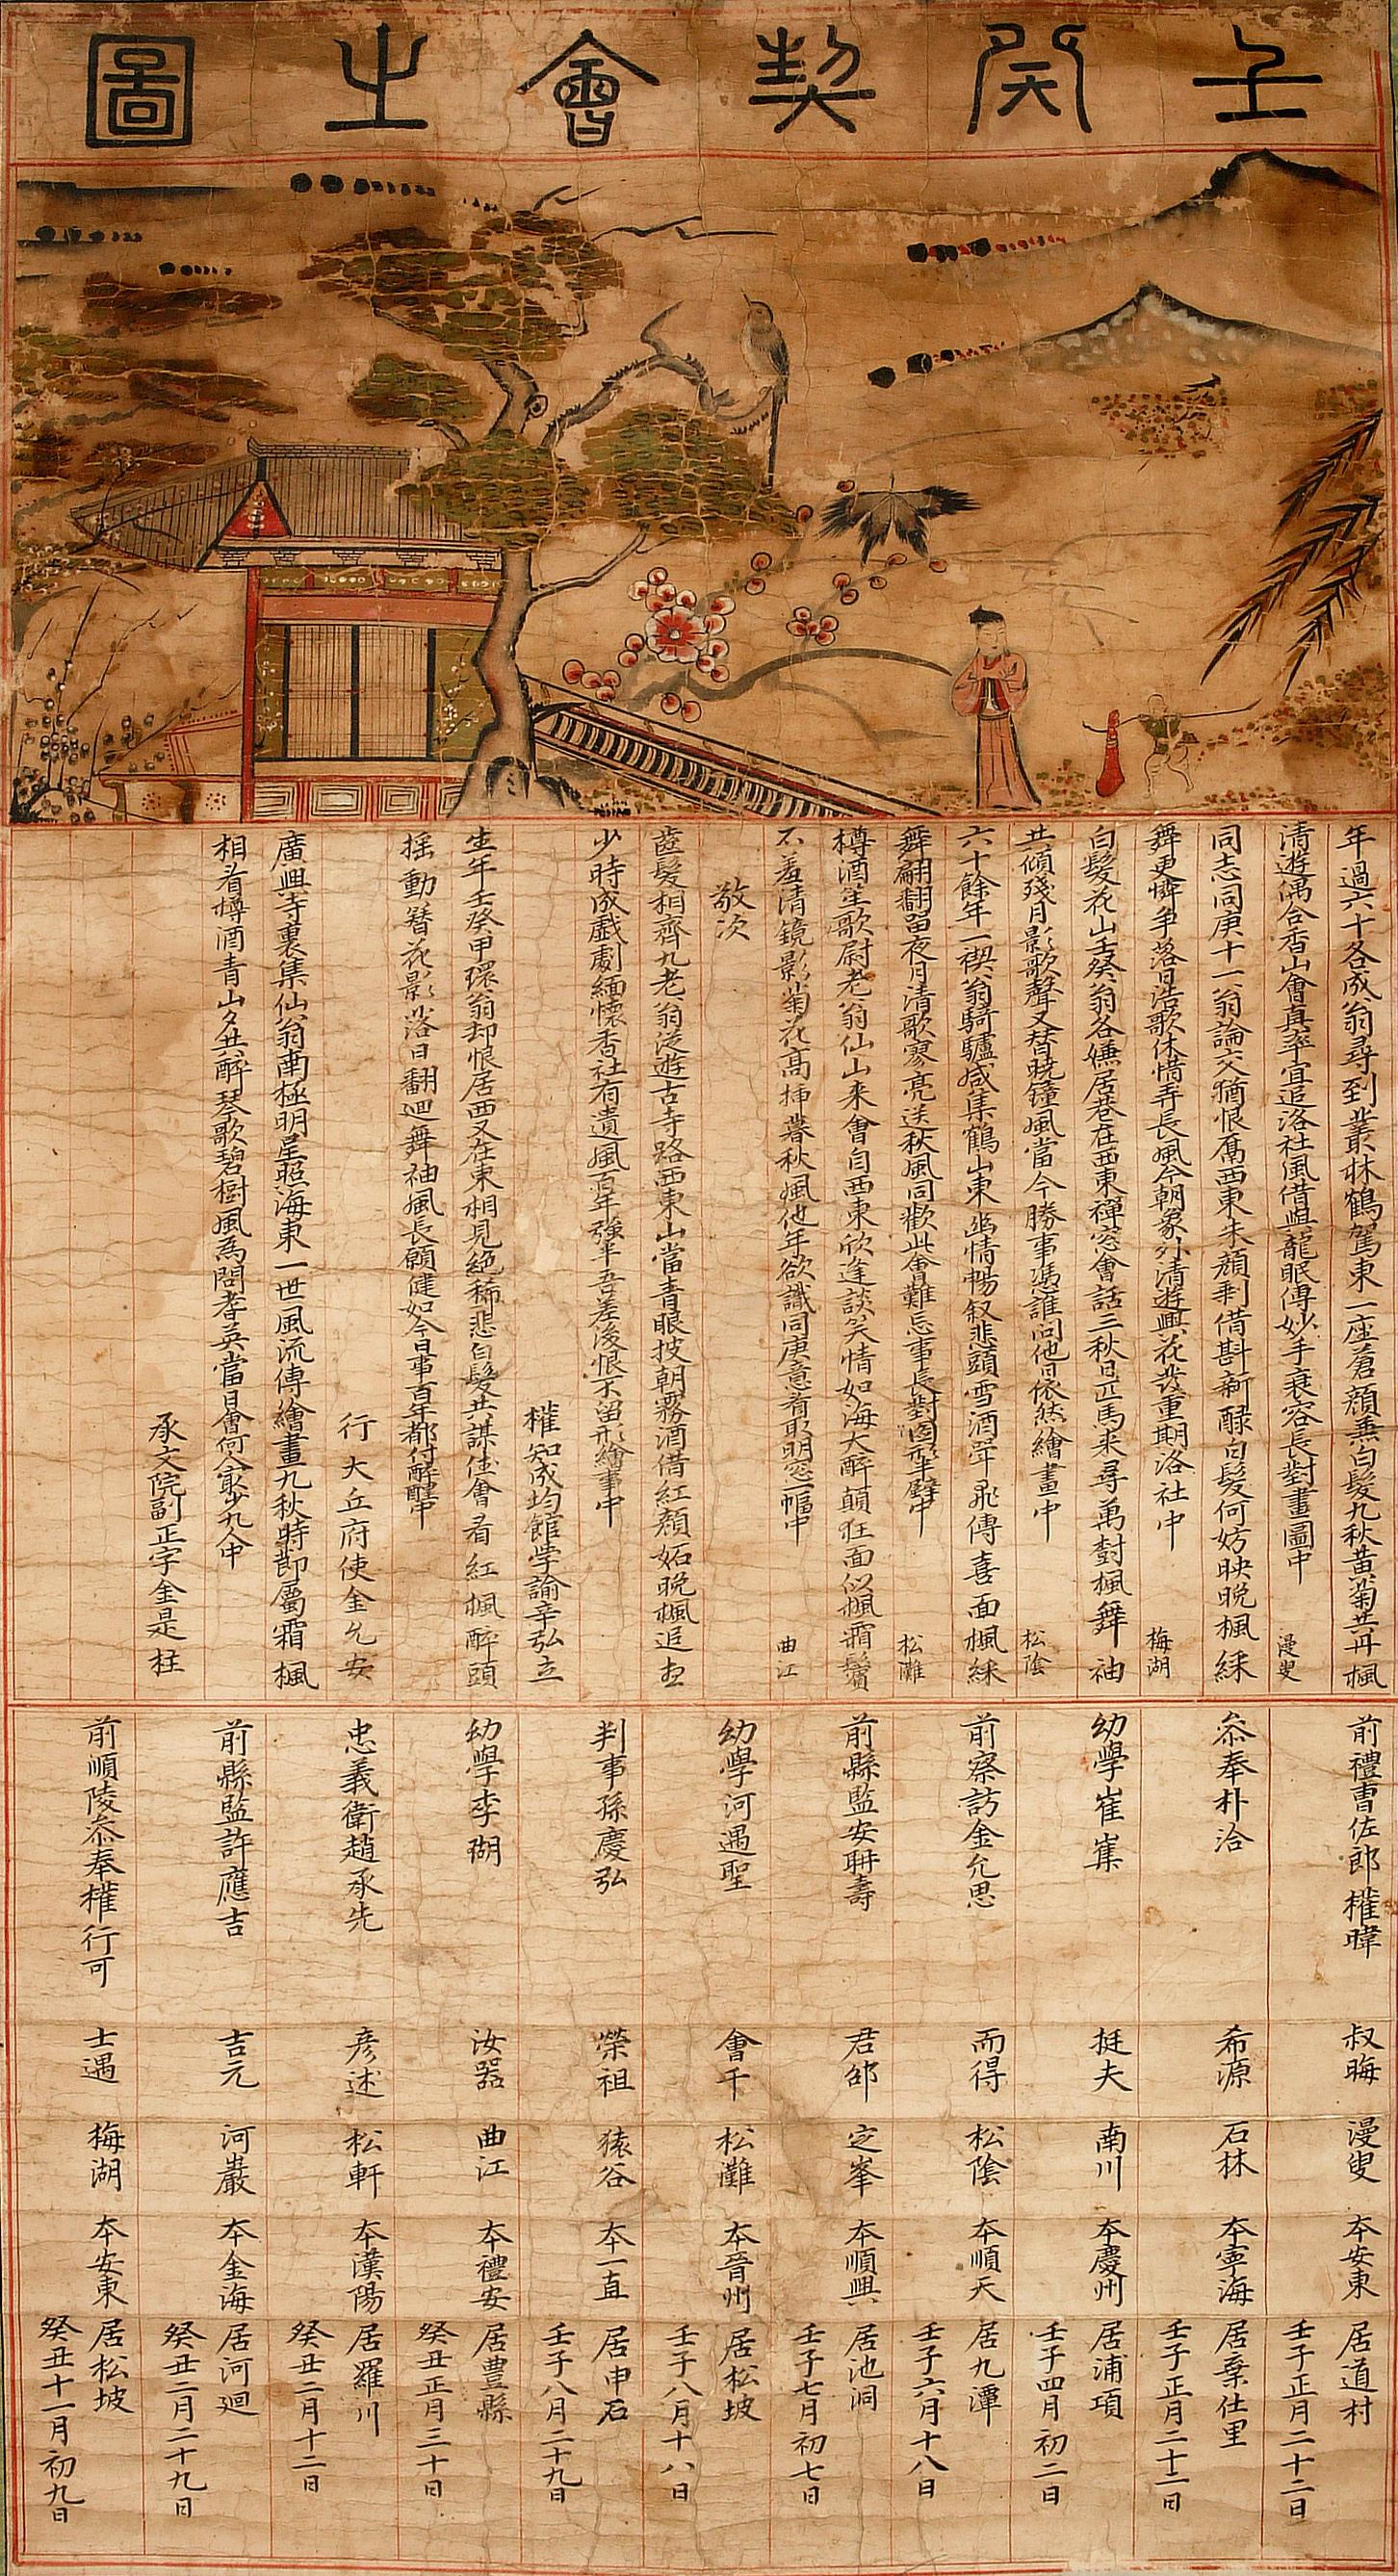 壬癸契會之圖
年過六十各成翁尋到叢林鶴駕東一座蒼顔兼白髮九秋黃菊共丹楓
清遊偶合香山會真率宜追洛社風借與龍眠傳妙手衰容長對畫圖中 漫叟
同志同庚十一翁論交猶恨寓西東朱顔剩借斟新醁白髮何妨映晚楓綵
舞更憐爭落日浩歌休惜弄長風今朝象外清遊興花發重期洛社中 梅湖
白髮花山壬癸翁各嫌居巷在西東禪窓會話三秋日匹馬來尋萬樹楓舞袖
共傾殘月影歌聲又替曉鐘風當今勝事憑誰問他日依然繪畫中 松陰
六十餘年一禊翁騎驢咸集鶴山東幽情暢叙悲頭雪酒斝飛傳喜面楓綵
舞翩翻留夜月清歌寥亮送秋風同歡此會難忘事長對圖形壁中 松灘
樽酒笙歌尉老翁仙山來會自西東欣逢談笑情如海大醉顛狂面似楓霜鬢
不羞清鏡影菊花高揷暮秋風他年欲識同庚意看取明窓一幅中 曲江
敬次
齒髮相齊九老翁泛遊古寺路西東山當青眼披朝霧酒借紅顔妬晚楓追想
少時成戯劇緬懷香社有遺風百年強半吾差後恨不留形繪事中
權知成均館學諭辛弘立
生年壬癸甲環翁却恨居西又在東相見絶稀悲白髮共謀佳會看紅楓醉頭
搖動簪花影落日翻迴舞袖風長願健如今日事百年都付醉醒中
行大丘府使金允安
廣興寺裏集仙翁南極明星照海東一世風流傳繪畫九秋時節屬霜楓
相看樽酒青山夕共醉琴歌碧樹風為問耆英當日會何人最少九人中
承文院副正字金是柱
前禮曹佐郎權暐 叔晦 漫叟 本安東 居道村
壬子正月二十二日
叅奉朴洽 希源 石林 本寧海 居棄仕里
壬子正月二十二日
幼學崔㠍 挺夫 南川 本慶州 居浦項
壬子四月初二日
前察訪金允思 而得 松陰 本順天 居九潭
壬子六月十八日
前縣監安聃壽 君邵 定峯 本順興 居池洞
壬子七月初七日
幼學河遇聖 會千 松灘 本晉州 居松坡
壬子八月十八日
判事孫慶弘 榮祖 猿谷 本一直 居申石
壬子八月二十九日
幼學李瑚 汝器 曲江 本禮安 居豊縣
癸丑正月三十日
忠義衛趙承先 彦述 松軒 本漢陽 居羅川
癸丑二月十二日
前縣監許應吉 吉元 河巖 本金海 居河廻
癸丑二月二十九日
前順陵叅奉權行可 士遇 梅湖 本安東 居松坡
癸丑十一月初九日